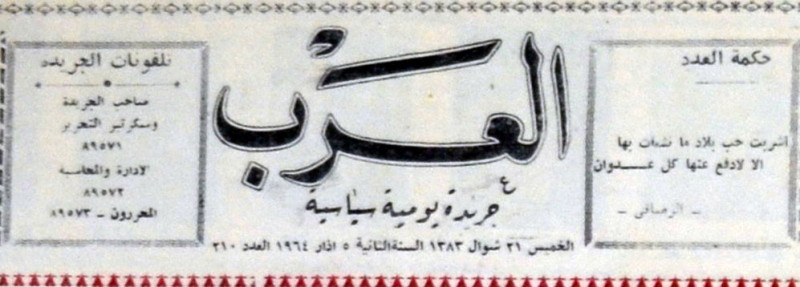 حكمة العدد
اشربت حب بلاد ما نشأت بها
الا لادفع عنها كل عدوان
- الرصافي -
العرب
جريدة يومية سياسية
الخميس ٢١ شوال ١٣٨٣ السنة الثانية ٥ اذار ١٩٦٤ العدد ٢١٠
تلفونات الجريدة
صاحب الجريدة
وسكرتير التحرير
٨٩٥٧١
الادارة والمحاسبة
٨٩٥٧٢
المحررون - ٨٩٥٧٣